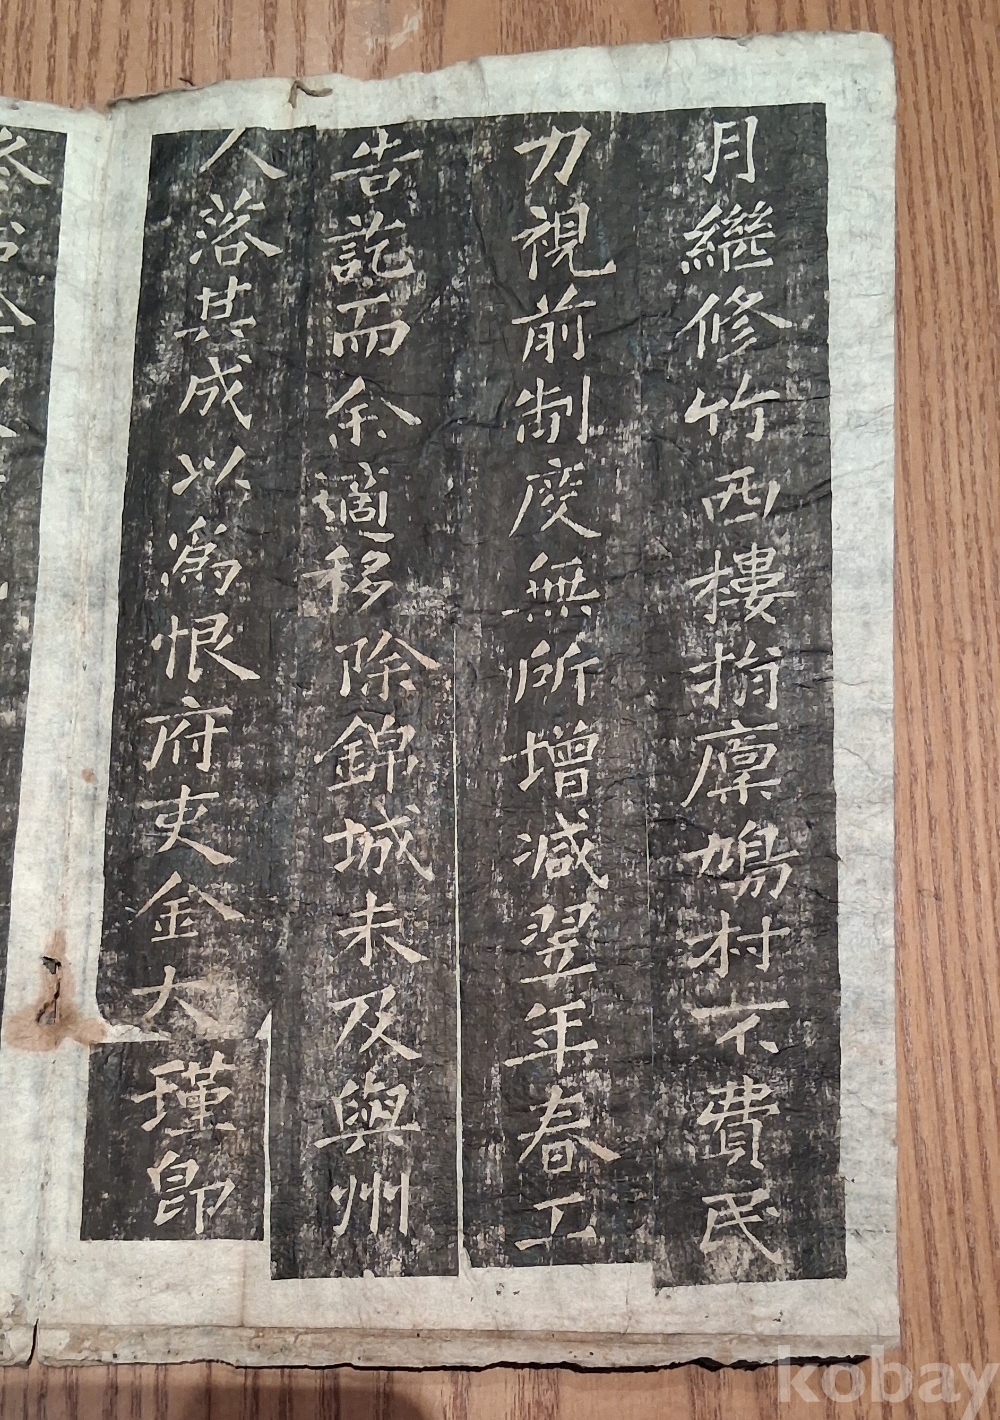 月繼修竹西樓捐廩鳩材不費民
力視前制度無所增減翌年春工
告訖而余適移除錦城未及與州
人落其成以爲恨府吏金大瑾卽
kobay